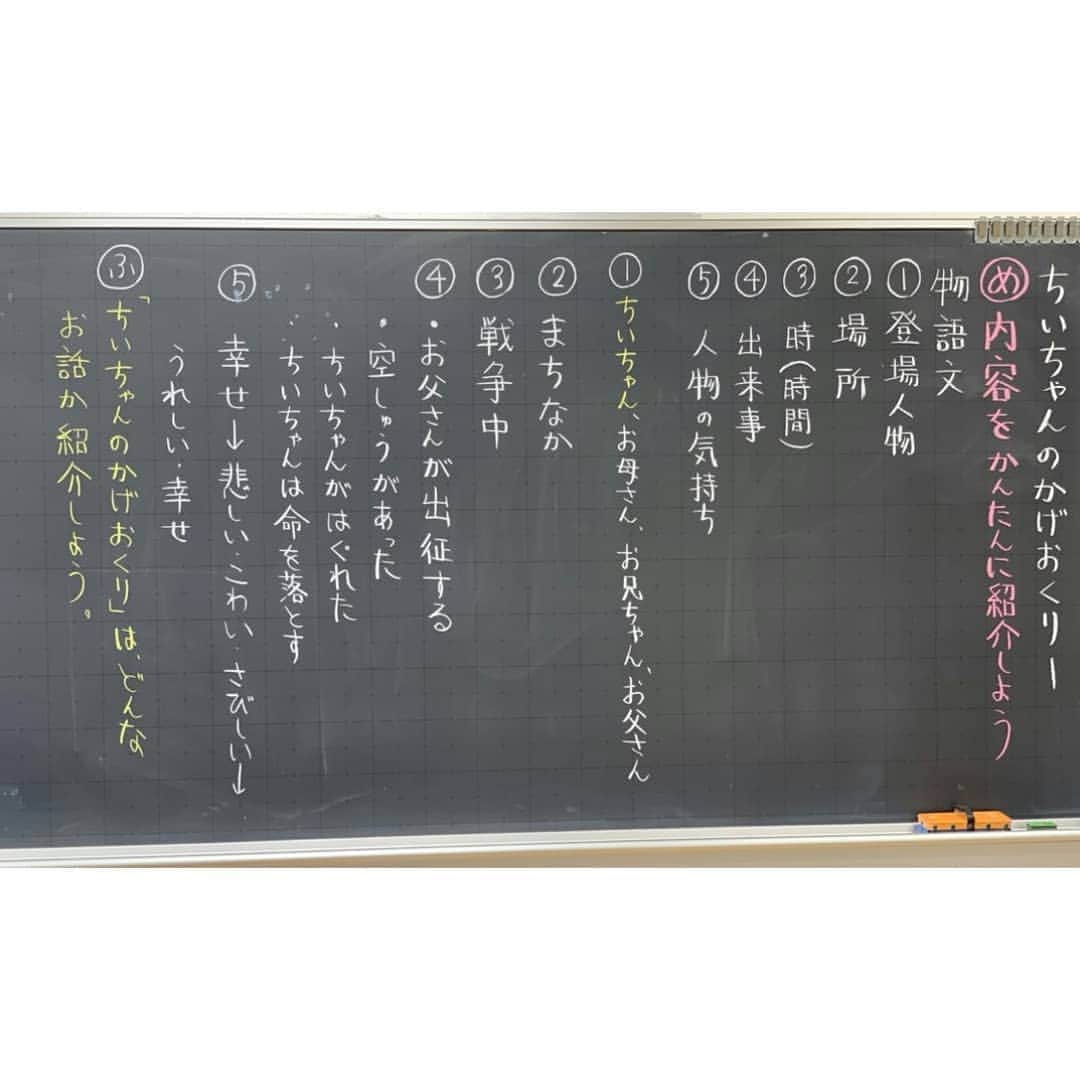 ちいちゃんのかげおくりー
め 内容をかんたんに紹介しよう
物語文
①登場人物
②場所
③時(時間)
④出来事
⑤人物の気持ち
①ちいちゃん、お母さん、お兄ちゃん、お父さん
②まちなか
③戦争中
④・お父さんが出征する
・空しゅうがあった
・ちいちゃんがはぐれた
・ちいちゃんは命を落とす
⑤幸せ→悲しい・こわい・さびしい→
うれしい・幸せ
ふ「ちいちゃんのかげおくり」は、どんな
お話か紹介しよう。